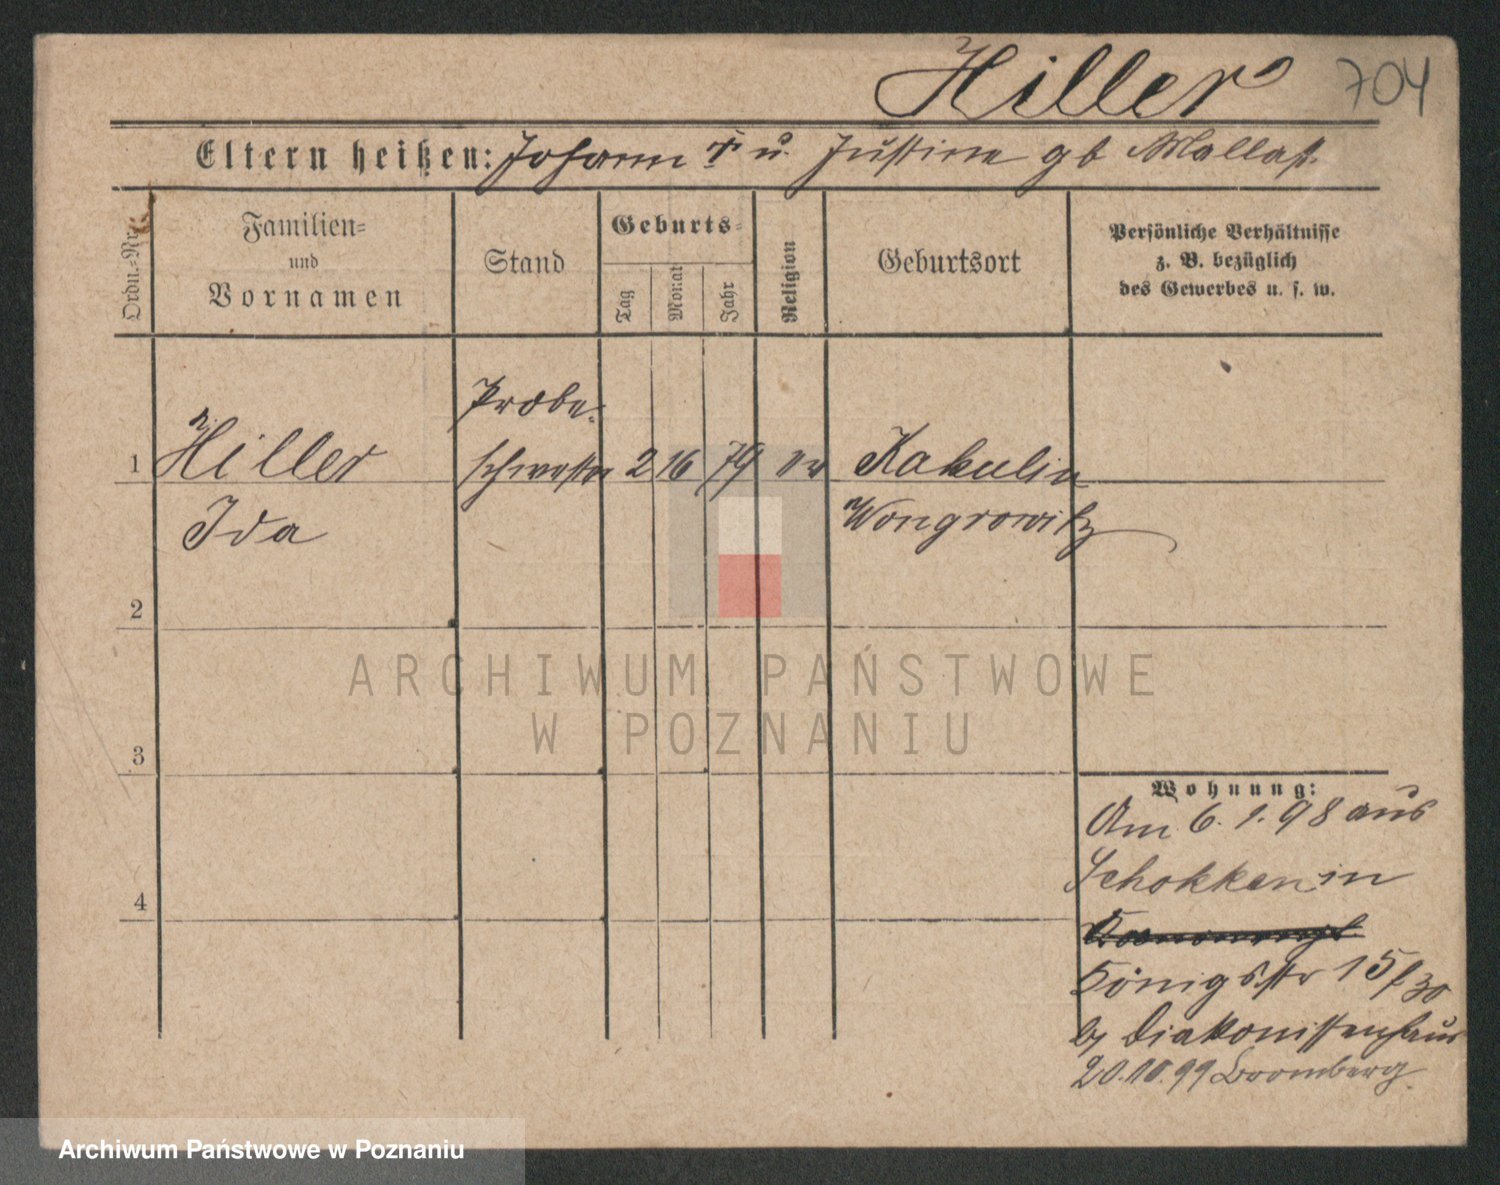 Hiller 704
Eltern heißen: Johann † u. Justine gb Mallast
Ordn.-Nr.
Familien=
und
Vornamen
Stand
Geburts=
Tag
Monat
Jahr
Religion
Geburtsort
Persönliche Verhältnisse
z. B. bezüglich
des Gewerbes u. s. w.
Probe-
1 Hiller schwester 2 16 79 ev Kakulin
Ida Wongrowitz
2
3
4
Wohnung:
Am 6. 1. 98 aus
Schokken in
Königsstr 15 / 30
bg Diakonissenhaus
20.10.99 Bromberg.
ARCHIWUM PAŃSTWOWE
W POZNANIU
Archiwum Państwowe w Poznaniu